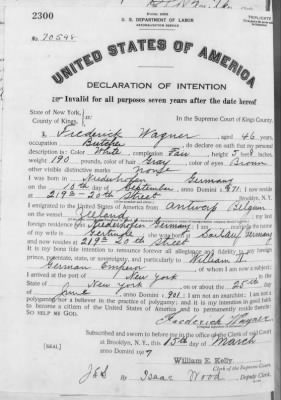 2300
U. S. DEPARTMENT OF LABOR
NATURALIZATION SERVICE
TRIPLICATE
No. 70598
UNITED STATES OF AMERICA
DECLARATION OF INTENTION
Invalid for all purposes seven years after the date hereof
State of New York,
County of Kings, ss:
In the Supreme Court of Kings County.
I, Frederick Wagner, aged 46 years,
occupation Butcher, do declare on oath that my personal
description is: Color White, complexion Fair, height 5 feet inches,
weight 190 pounds, color of hair Gray, color of eyes Brown
other visible distinctive marks None
I was born in Niederhofen Germany
on the 10th day of September, anno Domini 1871; I now reside
at 219 20th Street, Brooklyn, N. Y.
I emigrated to the United States of America from Antwerp Belgium
on the vessel Zeeland; my last
foreign residence was Niederhofen Germany; I am married; the name
of my wife is Gertrude; she was born at Germany
and now resides at 219 20th Street
It is my bona fide intention to renounce forever all allegiance and fidelity to any foreign
prince, potentate, state, or sovereignty, and particularly to William II
German Emperor, of whom I am now a subject;
I arrived at the port of New York, in the
State of New York, on or about the 25th day
of June, anno Domini 1901; I am not an anarchist; I am not a
polygamist nor a believer in the practice of polygamy; and it is my intention in good faith
to become a citizen of the United States of America and to permanently reside therein:
SO HELP ME GOD.
Frederick Wagner
Subscribed and sworn to before me in the office of the Clerk of said Court
at Brooklyn, N. Y., this 15th day of March
[SEAL] anno Domini 1917
William E. Kelly
Clerk of the Supreme Court.
By Isaac Wood, Deputy Clerk.